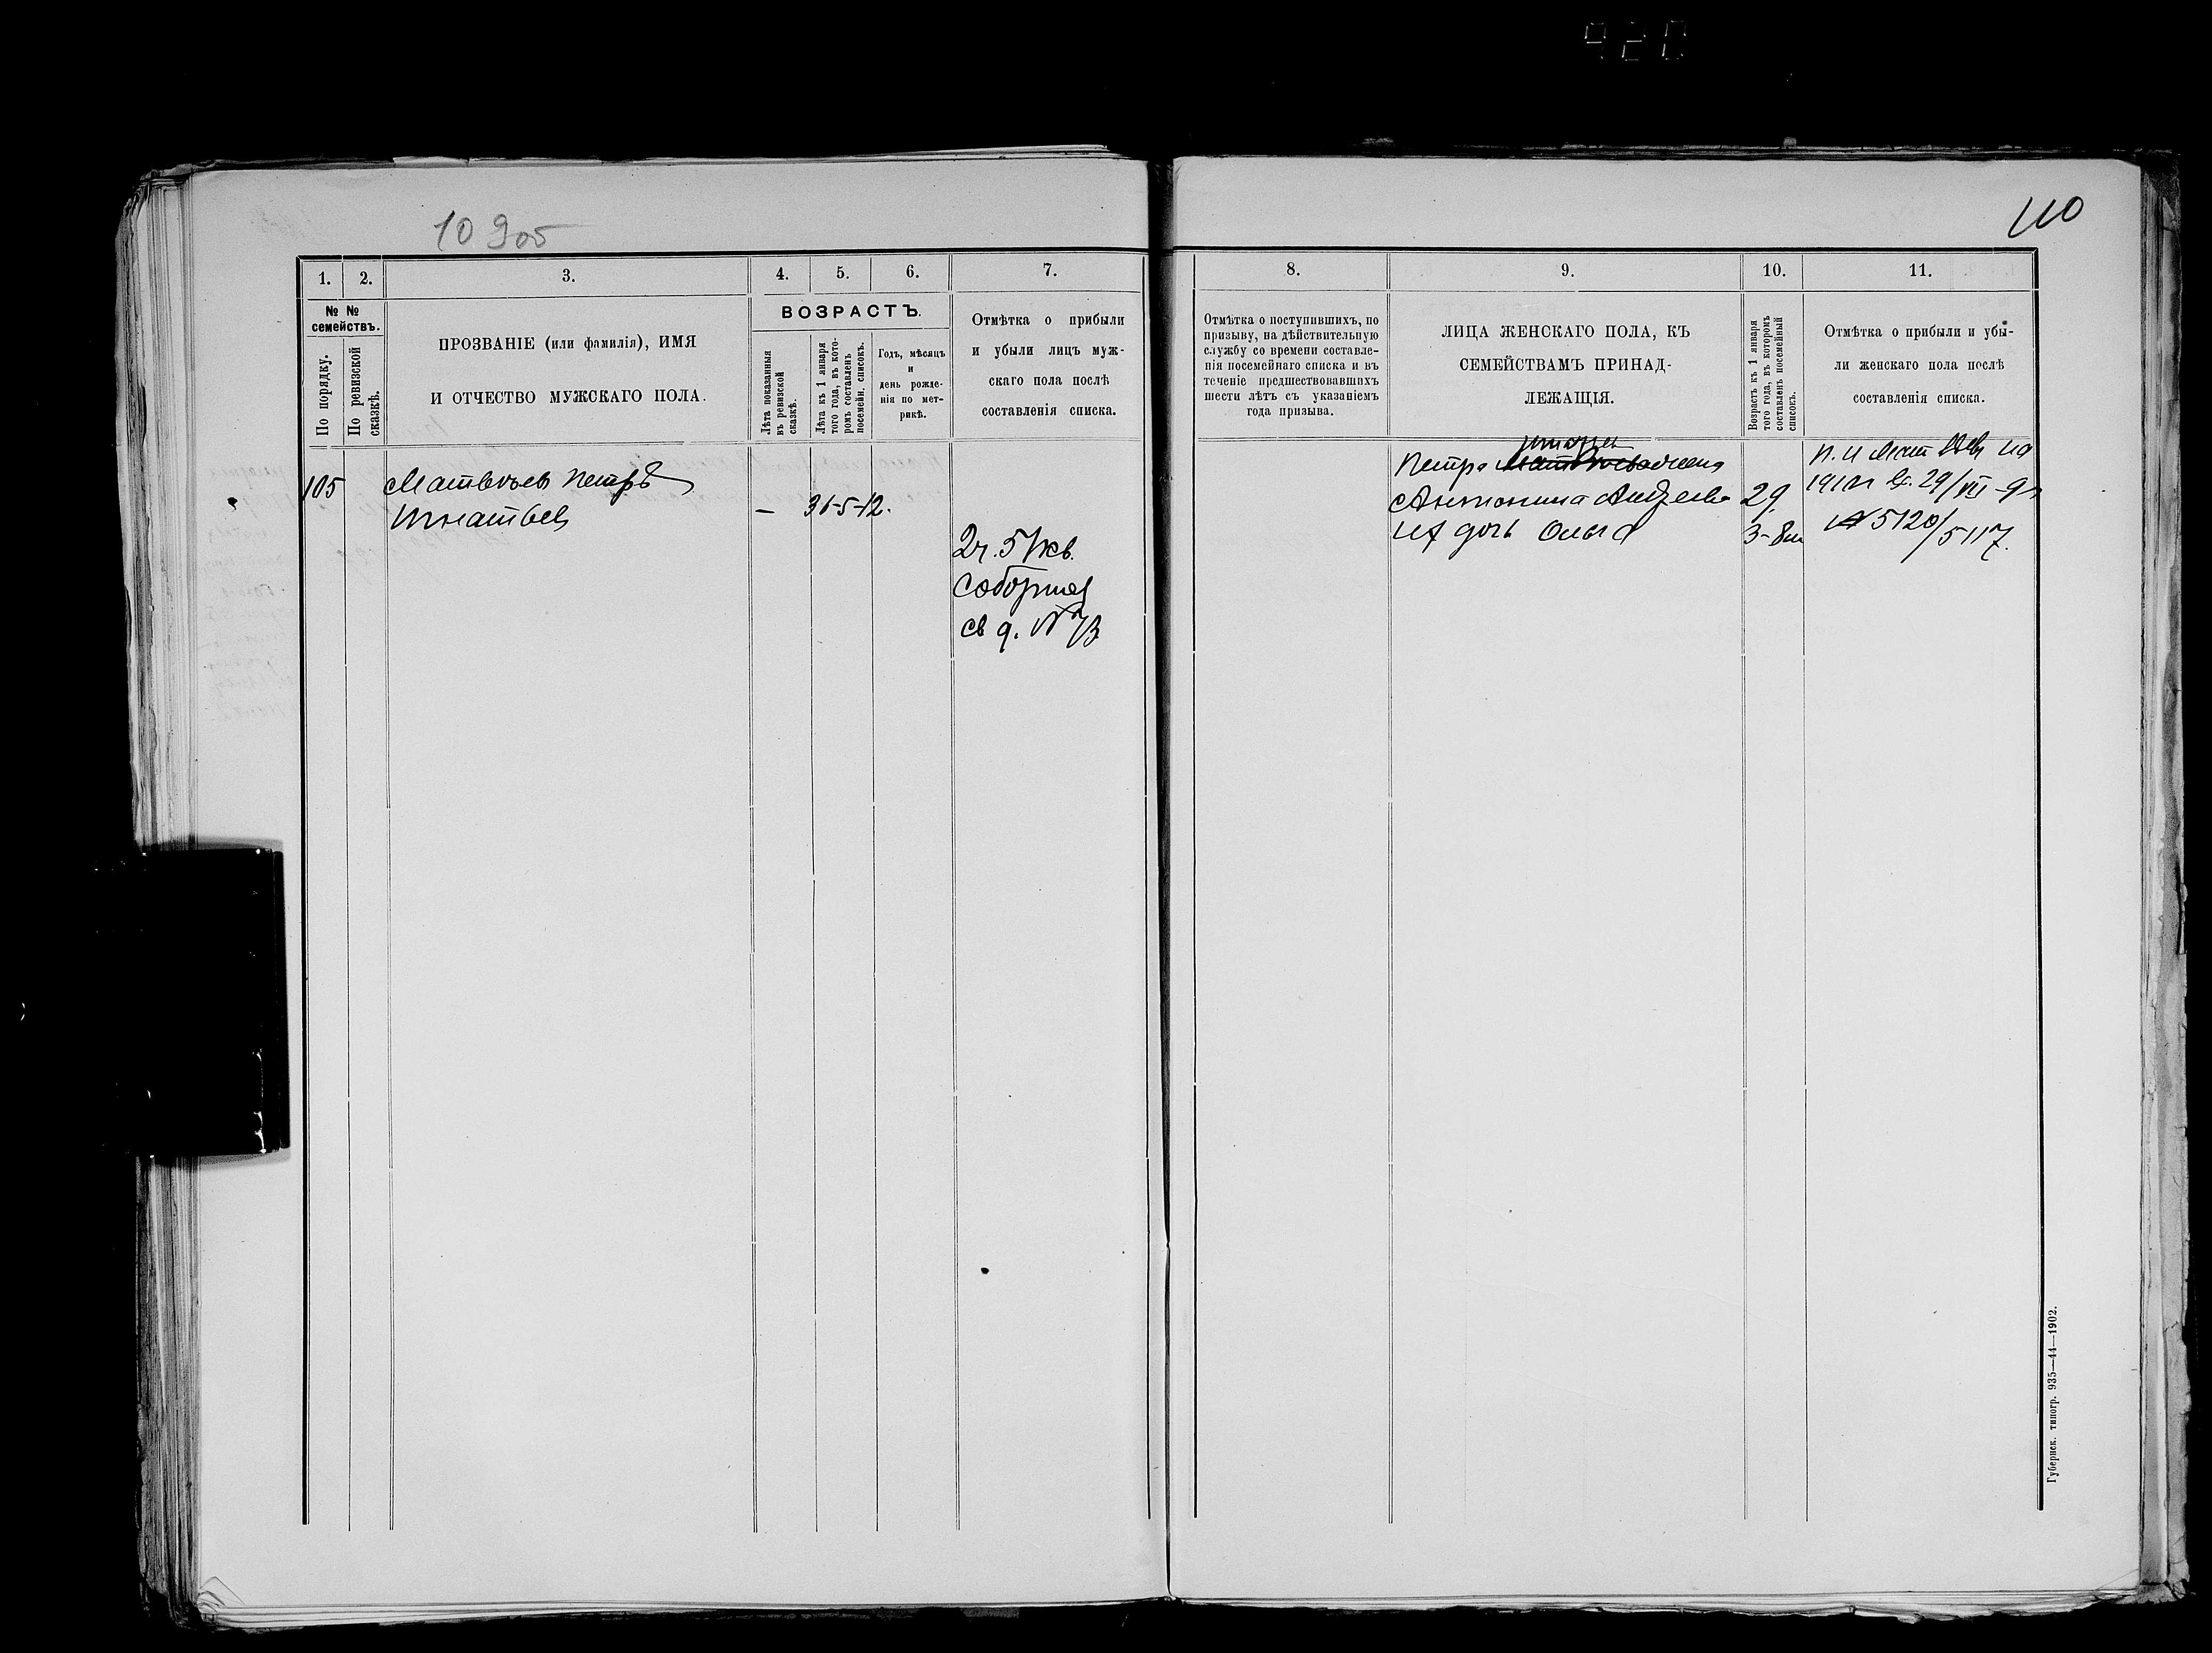 420
10 905
110
1. 2. 3. 4. 5. 6. 7.
№ № семействъ.
По порядку.
По ревизской сказкѣ.
ПРОЗВАНІЕ (или фамилія), ИМЯ
И ОТЧЕСТВО МУЖСКАГО ПОЛА.
ВОЗРАСТЪ.
Лѣта показанныя
въ ревизской
сказкѣ.
Лѣта къ 1 января
того года, въ кото-
ромъ составленъ
посемейн. списокъ.
Годъ, мѣсяцъ
и
день рожде-
нія по мет-
рикѣ.
Отмѣтка о прибыли
и убыли лицъ муж-
скаго пола послѣ
составленія списка.
105 Матвѣевъ Петръ
Игнатьев — 31-5-12.
2ч. 5/кв.
Соборная
св д. № 73
8. 9. 10. 11.
Отмѣтка о поступившихъ, по
призыву, на дѣйствительную
службу со времени составле-
нія посемейнаго списка и въ
теченіе предшествовавшихъ
шести лѣтъ съ указаніемъ
года призыва.
ЛИЦА ЖЕНСКАГО ПОЛА, КЪ
СЕМЕЙСТВАМЪ ПРИНАД-
ЛЕЖАЩІЯ.
Возрастъ къ 1 января
того года, въ которомъ
составленъ посемейный
списокъ.
Отмѣтка о прибыли и убы-
ли женскаго пола послѣ
составленія списка.
Петра жена
Антонина Андреева 29.
их дочь Ольга 3-8м
29/VII
№ 5120/5117.
Губернск. типогр. 935—44—1902.